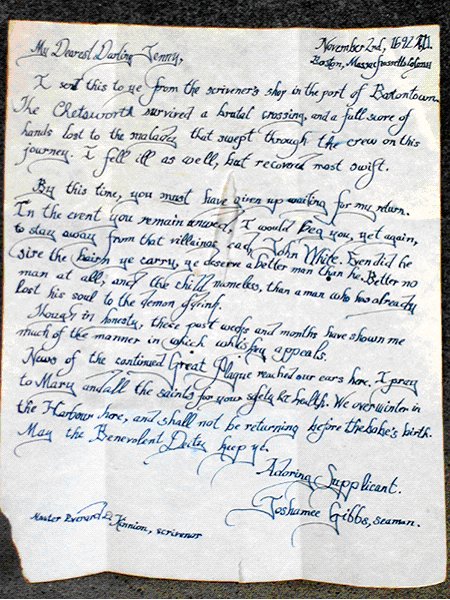 November 2nd, 1692
My Dearest Darling Jenny,
Boston, Massachusetts Colony
I sent this to ye from the scrivener's shop in the port of Bostontown.
The Chetsworth survived a brutal crossing, and a full score of
hands lost to the malady that swept through the crew on this
journey. I fell ill as well, but recovered most swift.
By this time, you must have given up waiting for my return.
In the event you remain unwed, I would beg you, yet again,
to stay away from that villainous cad, John White. Even did he
sire the bairn ye carry, ye deserve a better man than he. Better no
man at all, and the child nameless, than a man who has already
lost his soul to the demon drink.
Though in honesty, these past weeks and months have shown me
much of the manner in which whiskey appeals.
News of the continued Great Plague reached our ears here. I pray
to Mary and all the saints for your safety & health. We overwinter in
the Harbour here, and shall not be returning before the babe's birth.
May the Benevolent Deity keep ye.
Adoring Supplicant.
Joshamee Gibbs, seaman.
Master Everard Kennion, scrivenor